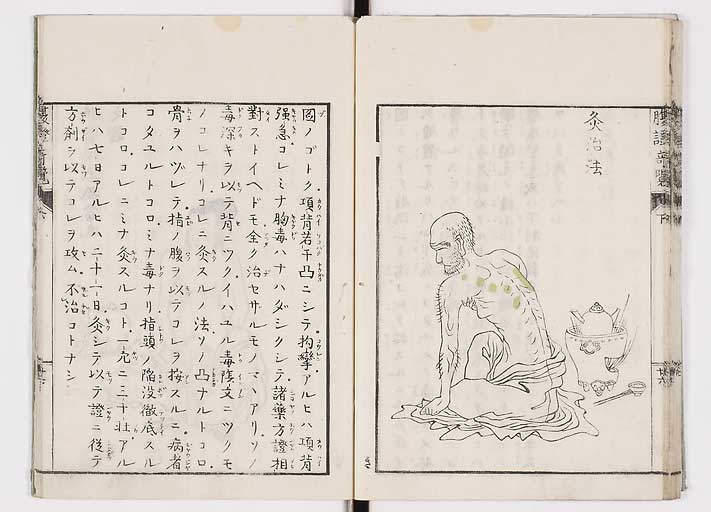 灸治法
腹證竒覽
下
廿六
國ノゴトク項背若干凸ニシテ拘攣アルヒハ項背
强急コレミナ胸毒ハナハダシクシテ諸藥方證相
對ストイヘドモ全ク治セザルモノマヽアリソノ
毒深キヲ以テ背ニツクイハユル毒陰文ニツクモ
ノコレナリコレニ灸スルノ法ソノ凸ナルトコロ
骨ヲハヅレテ指ノ腹ヲ以テコレヲ按スルニ病者
コタユルトコロミナ毒ナリ指頭ノ陥没徹底スル
トコロコレニミナ灸スルコト一穴ニ三十壯アル
ヒハ七日アルヒハ二十一日灸シテ以テ證ニ從テ
方劑ヲ以テコレヲ攻ム不治コトナシ